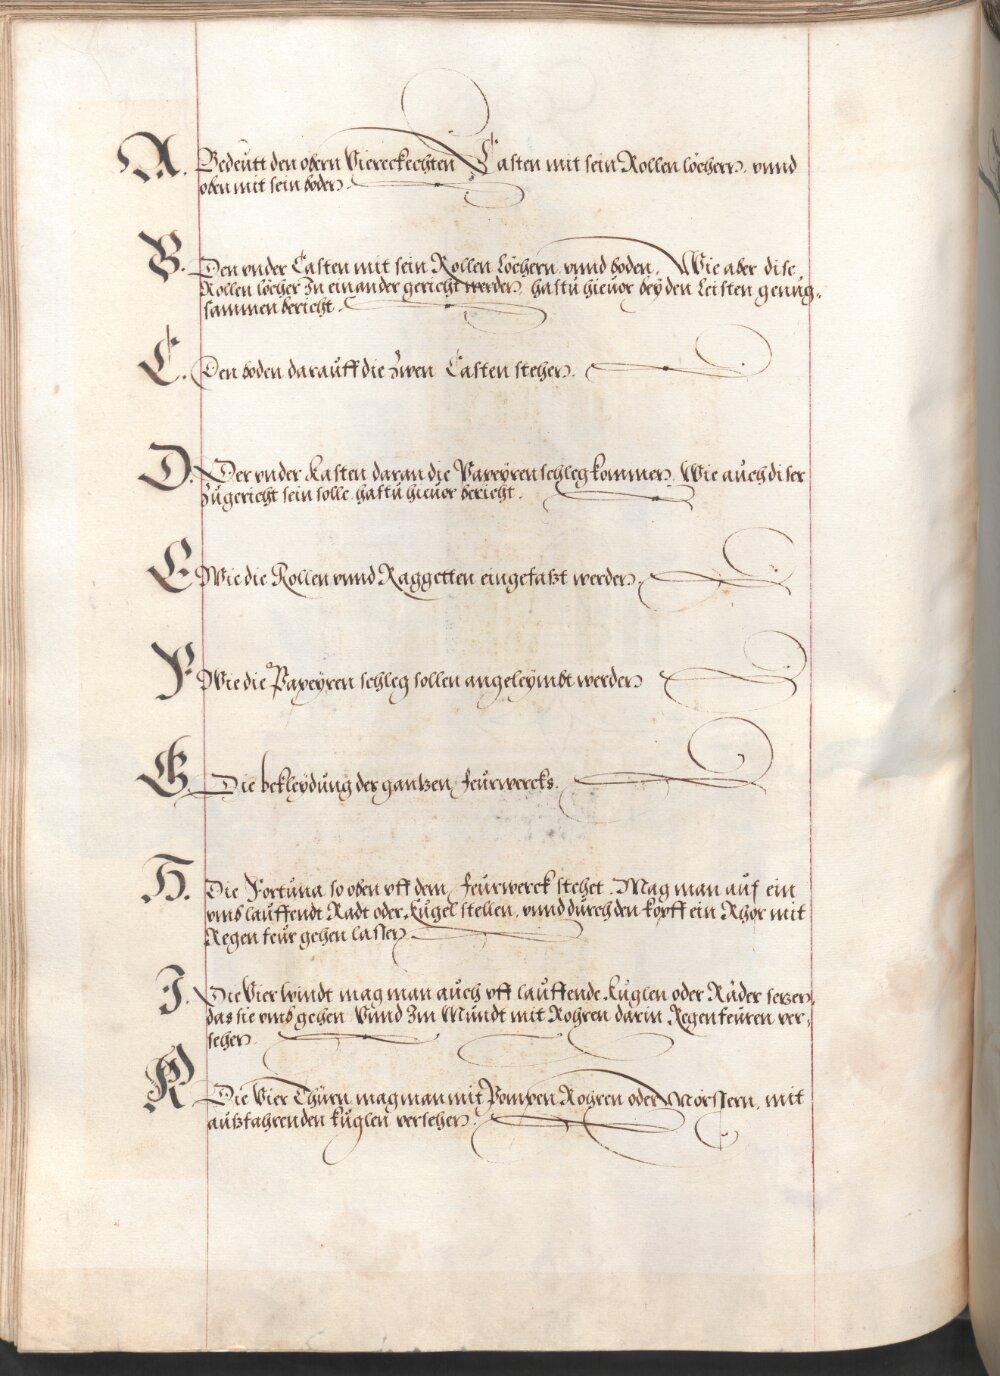 A. Bedeutt den obern Viereckechten Casten mit sein Rollen löchern, vnnd
oben mit sein boden.
B. Den vnder Casten mit sein Rollen Löchern vnnd boden, Wie aber dise
Rollen löcher zu einander gericht werden, hastu hieuor bey den Leisten genüg-
sammen bericht.
C. Den boden darauff die zwen Casten stehen.
D. Der vnder Kasten daran die Papeyren schleg kommen, Wie auch diser
zugericht sein solle, hastu hieuor bericht.
E. Wie die Rollen vnnd Raggetten eingefaßt werden.
F. Wie die Papeyren schleg sollen angeleymbt werden
G. Die bekleydung des gantzen feurwercks.
H. Die Fortuna so oben vff dem feurwerck stehet. Mag man auf ein
vmblauffendt Radt oder Kugel stellen, vnnd durch den kopff ein Rhor mit
Regen feur gehen lassen.
I. Die Vier windt mag man auch vff lauffende Kuglen oder Räder setzen,
das sie vmb gehen Vnnd Zm Mundt mit Rohren darin Regen feuren ver-
sehen.
K. Die Vier Thürn mag man mit Pompen Rohren oder Mörssern, mit
außfahrenden kuglen versehen.